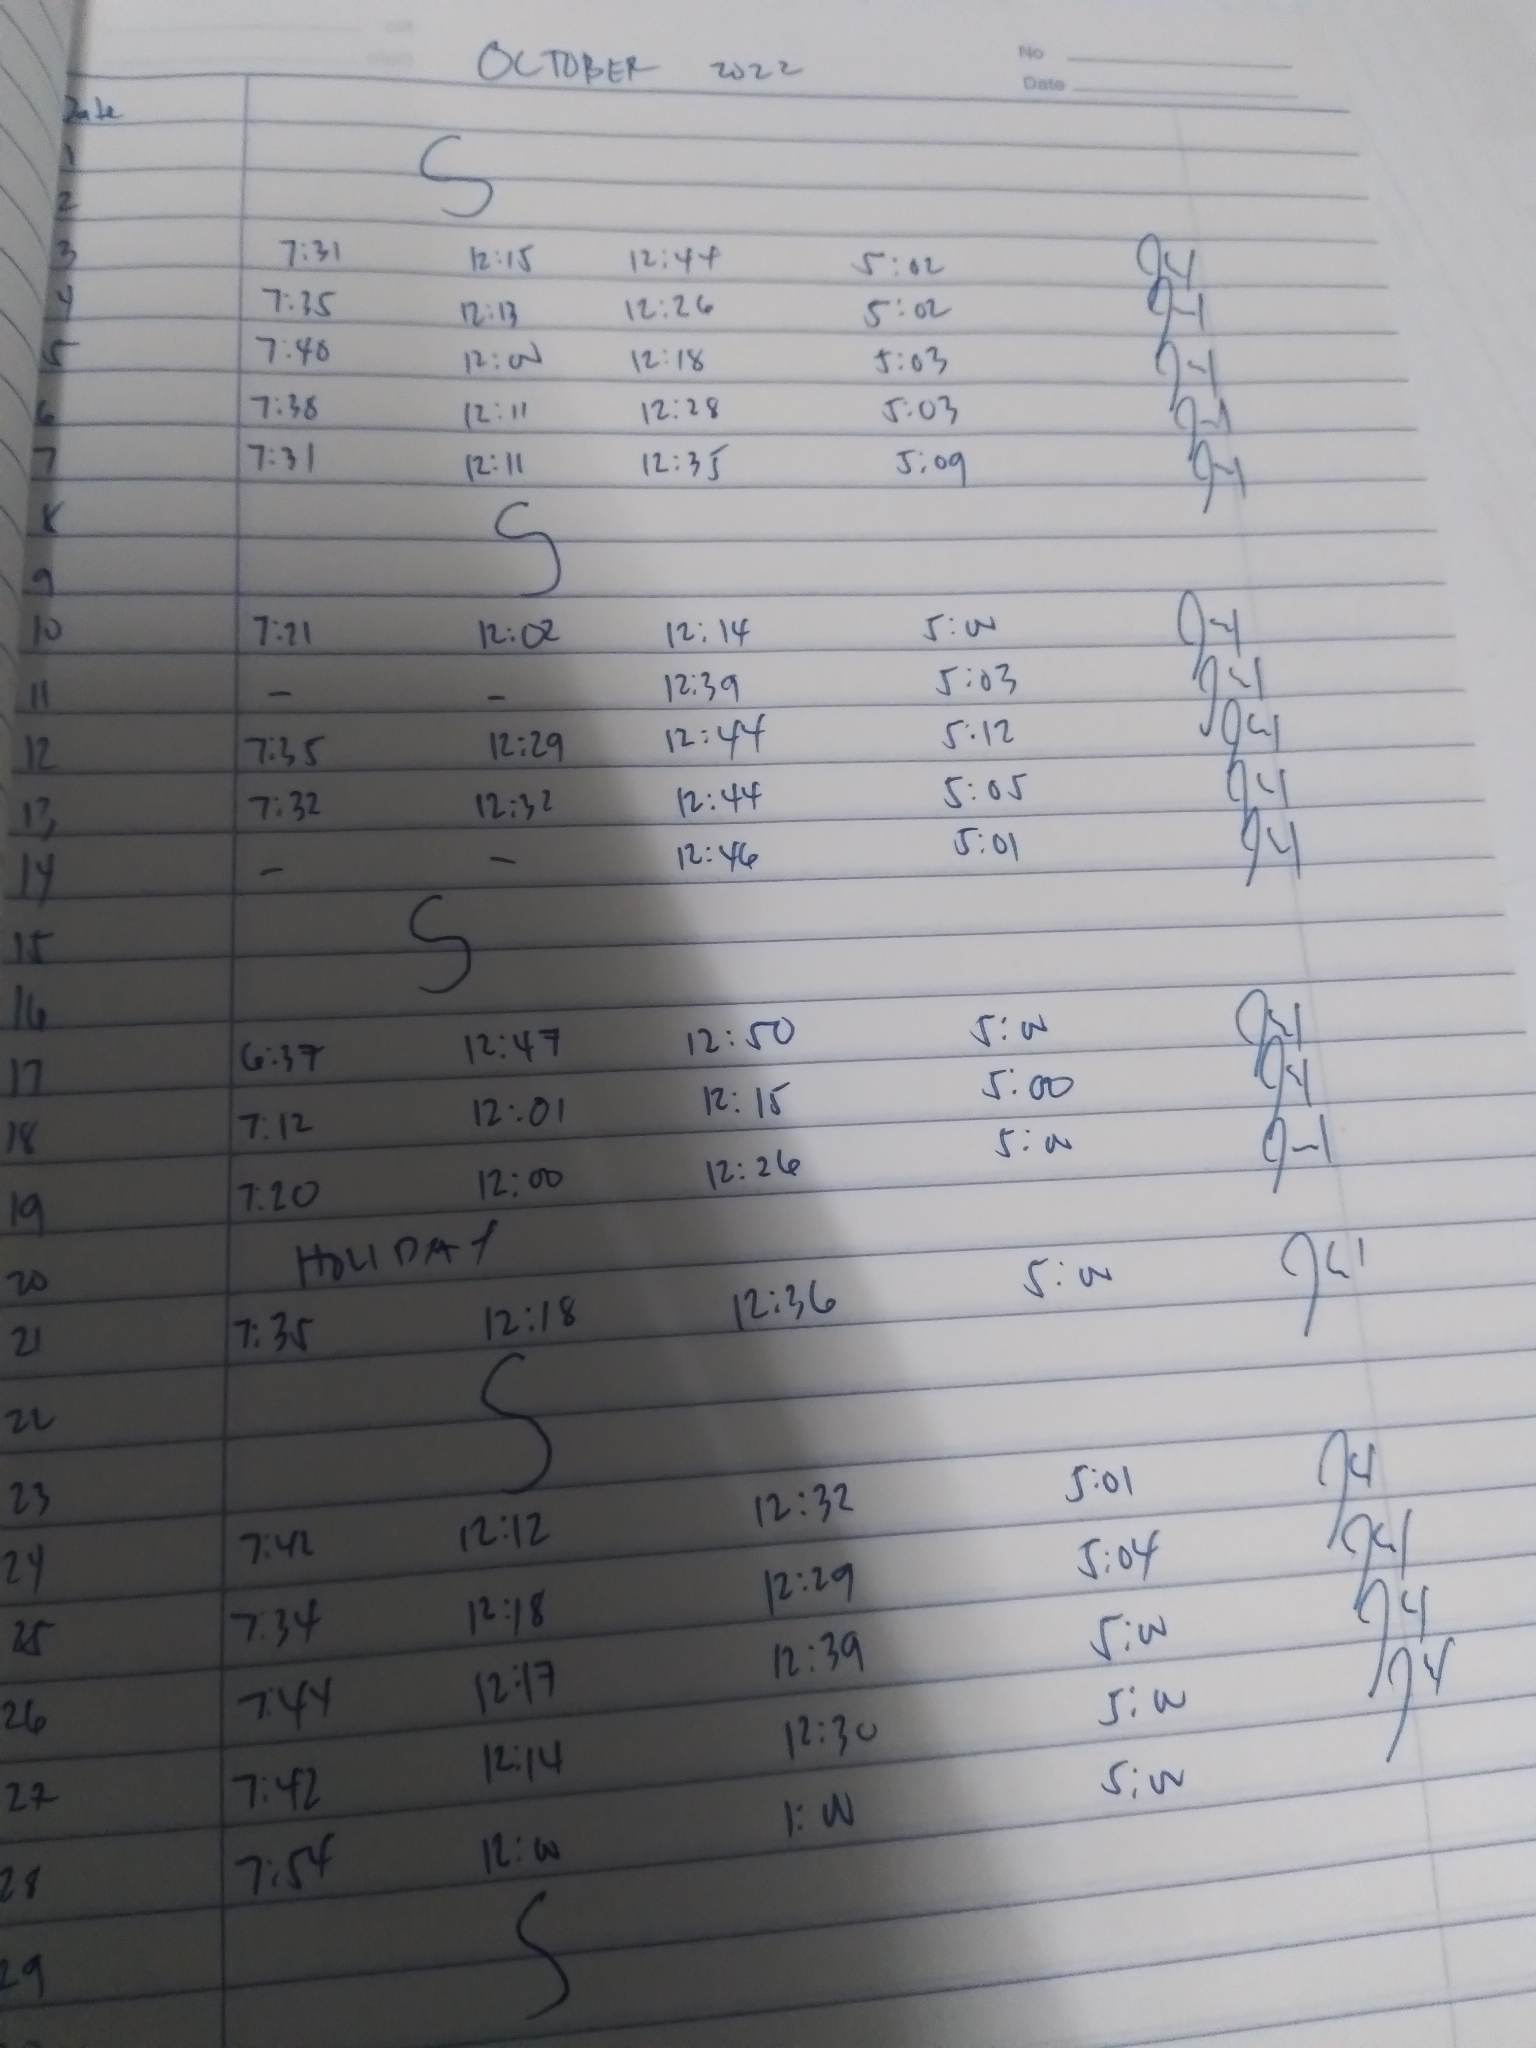 OCTOBER 2022
No
Date
Date
1
2
S
3 7:31 12:15 12:44 5:02
4 7:35 12:13 12:26 5:02
5 7:40 12:00 12:18 5:03
6 7:38 12:11 12:28 5:03
7 7:31 12:11 12:35 5:09
8
S
9
10 7:21 12:02 12:14 5:00
11 - - 12:39 5:03
12 7:35 12:29 12:44 5:12
13 7:32 12:32 12:44 5:05
14 - - 12:46 5:01
15
S
16
17 6:37 12:47 12:50 5:00
18 7:12 12:01 12:15 5:00
19 7:20 12:00 12:26 5:00
20 HOLIDAY
21 7:35 12:18 12:36 5:00
22
S
23
24 7:42 12:12 12:32 5:01
25 7:34 12:18 12:29 5:04
26 7:44 12:17 12:39 5:00
27 7:42 12:14 12:30 5:00
28 7:54 12:00 1:00 5:00
29
S